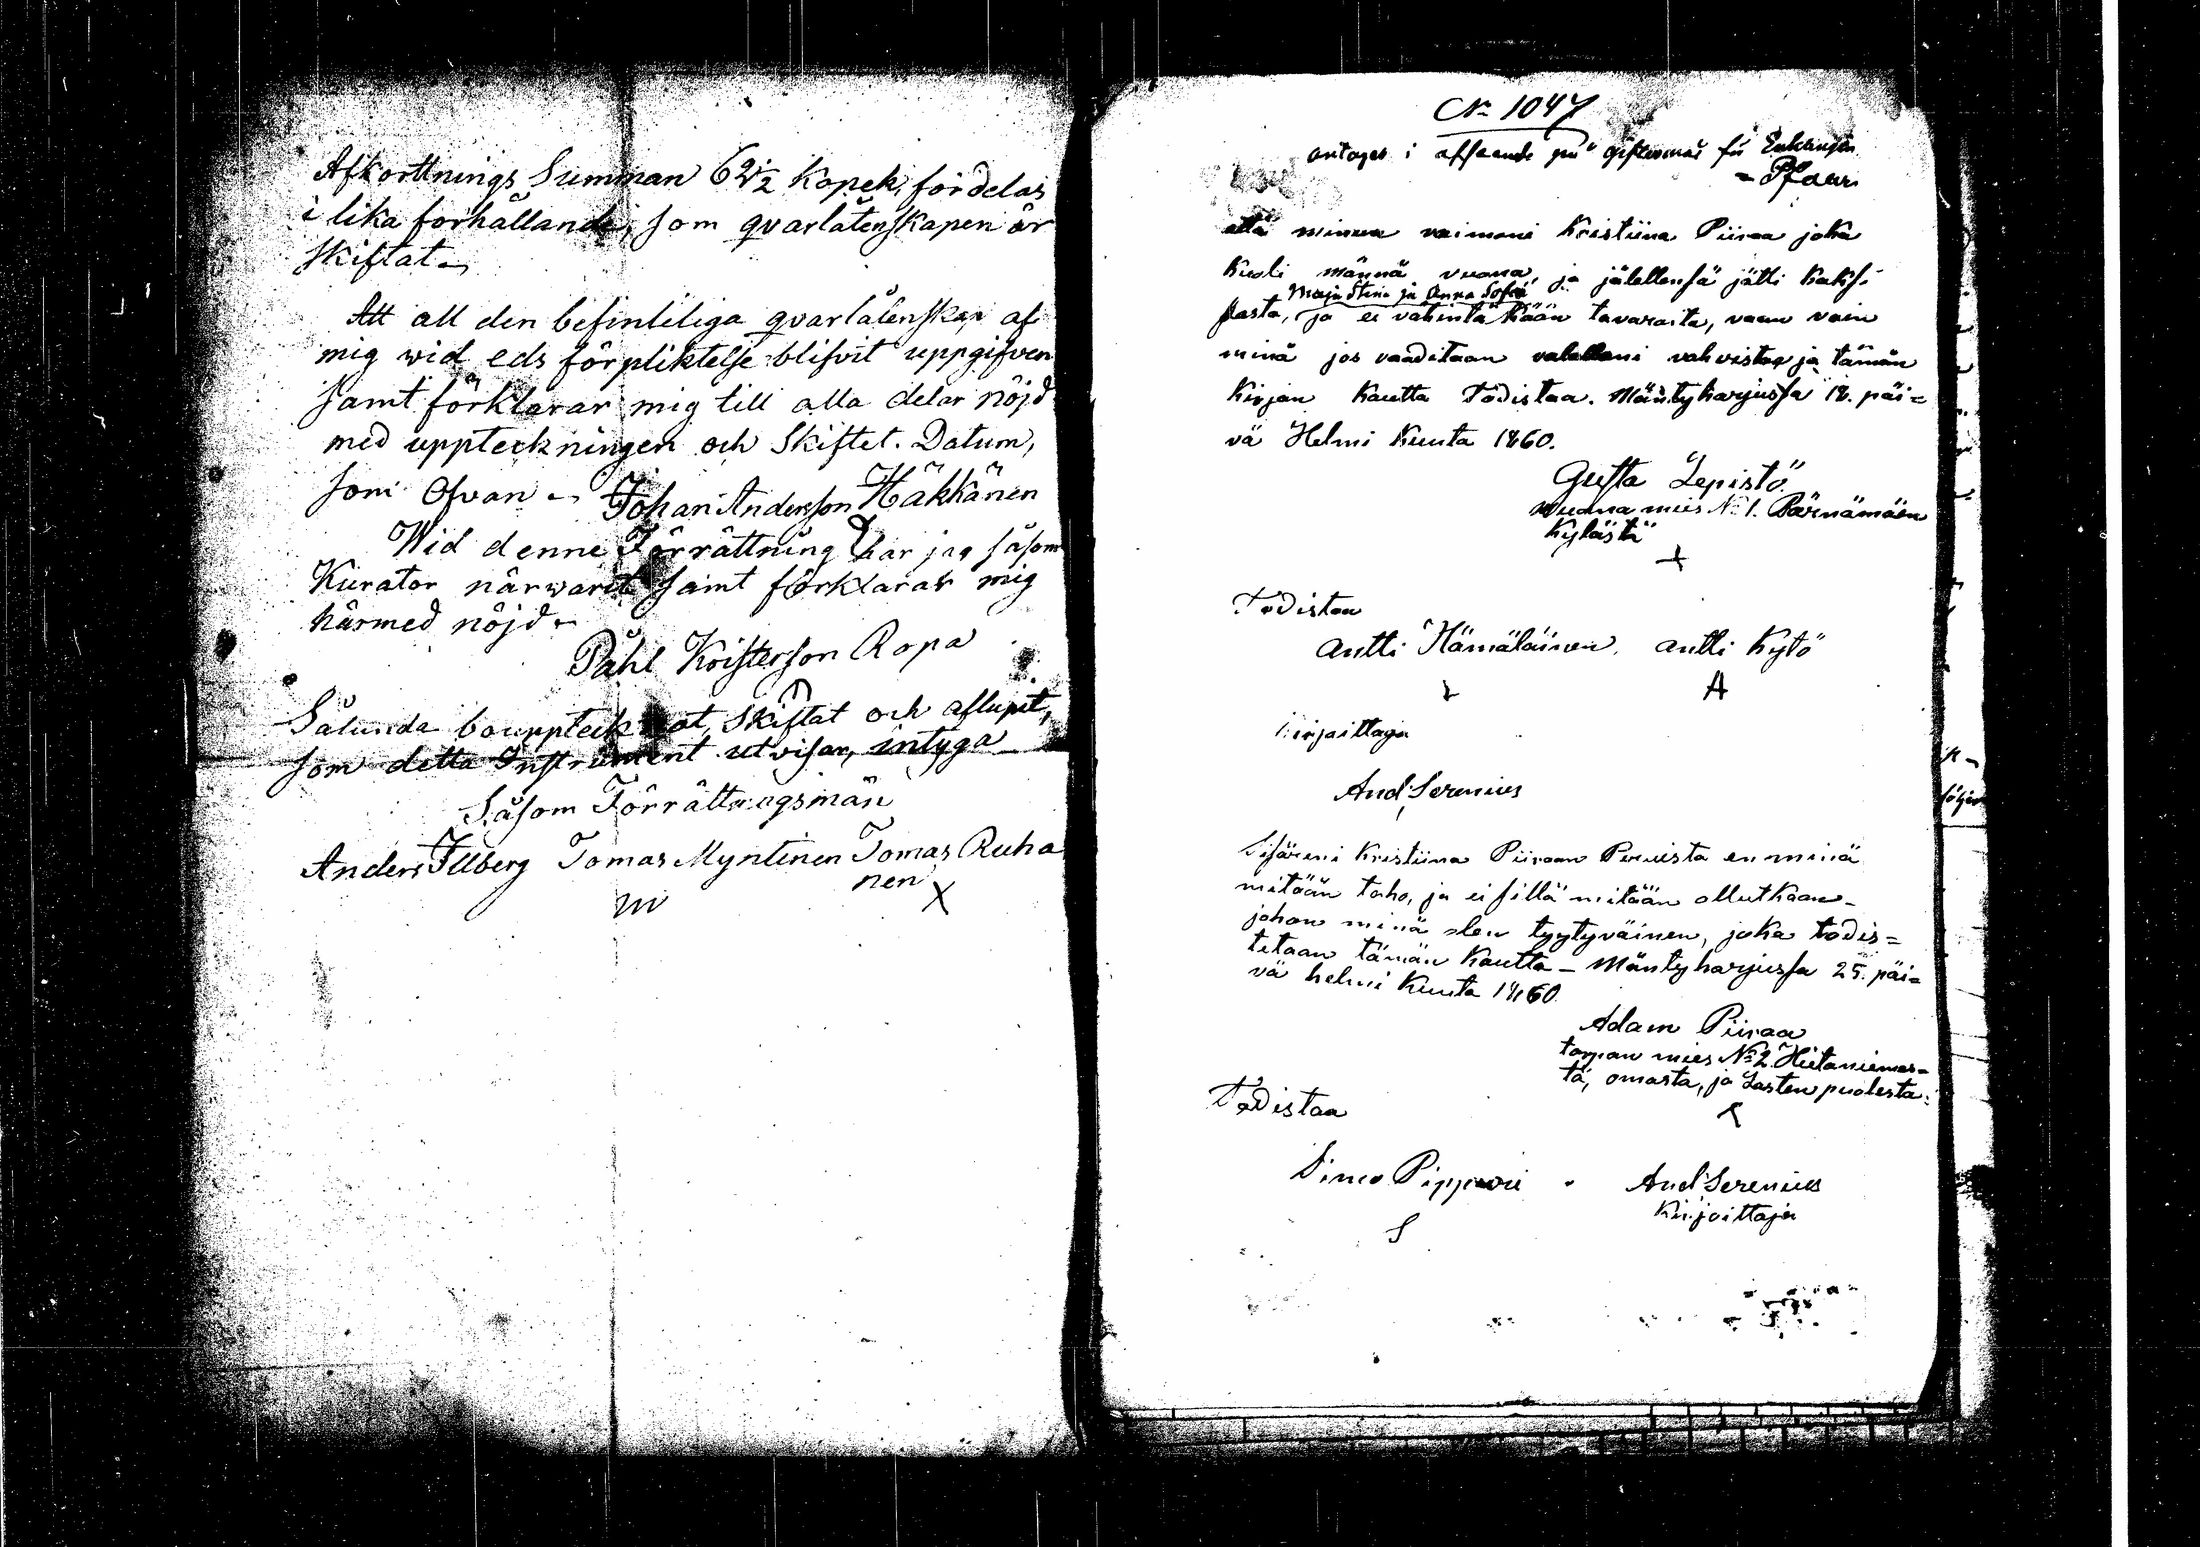 Afkorttnings Summan 62½ Kopek, fördelas
i lika förhållande, som qvarlåtenskapen är
skiftat.
Att all den befinteliga qvarlåtenskap af
mig wid eds förpliktelse blifvit uppgifven
samt förklarar mig till alla delar nöjd
med uppteckningen och Skiftet. Datum,
som Ofvan Johan Andersson Häkkänen
Wid denne Förrättning har jag såsom
Kurator närwarit samt förklarar mig
härmed nöjd
Påhl Kristersson Ropa
Sålunda bouppteck at, Skiftat och aflupit,
som detta Instrument utvisar, intyga
Såsom Förrättningsmän
Anders Illberg Tomas Myntinen Tomas Ruha
nen
m X
No 1047
antages i afseende på giftermål för Enklingen
Että minun vaimoni Kristiina Piiraa joka
kuoli männä vuona, ja jälellensä jätti kaksi
Maja Stina ja Anna Sofia
lasta, ja ei vähintäkään tavaraita, vaan vain
minä jos vaaditaan valallani vahvistaa ja tämän
kirjan kautta Todistaa. Mäntyharjussa 18. päi=
vä Helmi Kuuta 1860.
Gusta Lepistö
vuona mies No 1. Pärnämäen
Kylästä
+
Todistaa
Antti Hämäläinen. Antti Kytö
A
Kirjoittaja
And. Serenius
Sisäreni Kristiina Piiraan Peruista en minä
mitään taho, ja ei sillä mitään ollutkaan
johon minä olen tyytyväinen, joka todis=
tetaan tämän kautta – Mäntyharjussa 25. päi=
vä helmi Kuuta 1860.
Adam Piiraa
tarpan mies No 2 Hietaniemes=
tä, omasta, ja Lasten puolesta.
Todistaa
Simo Pippuri. And Serenius
Kirjoittaja
S